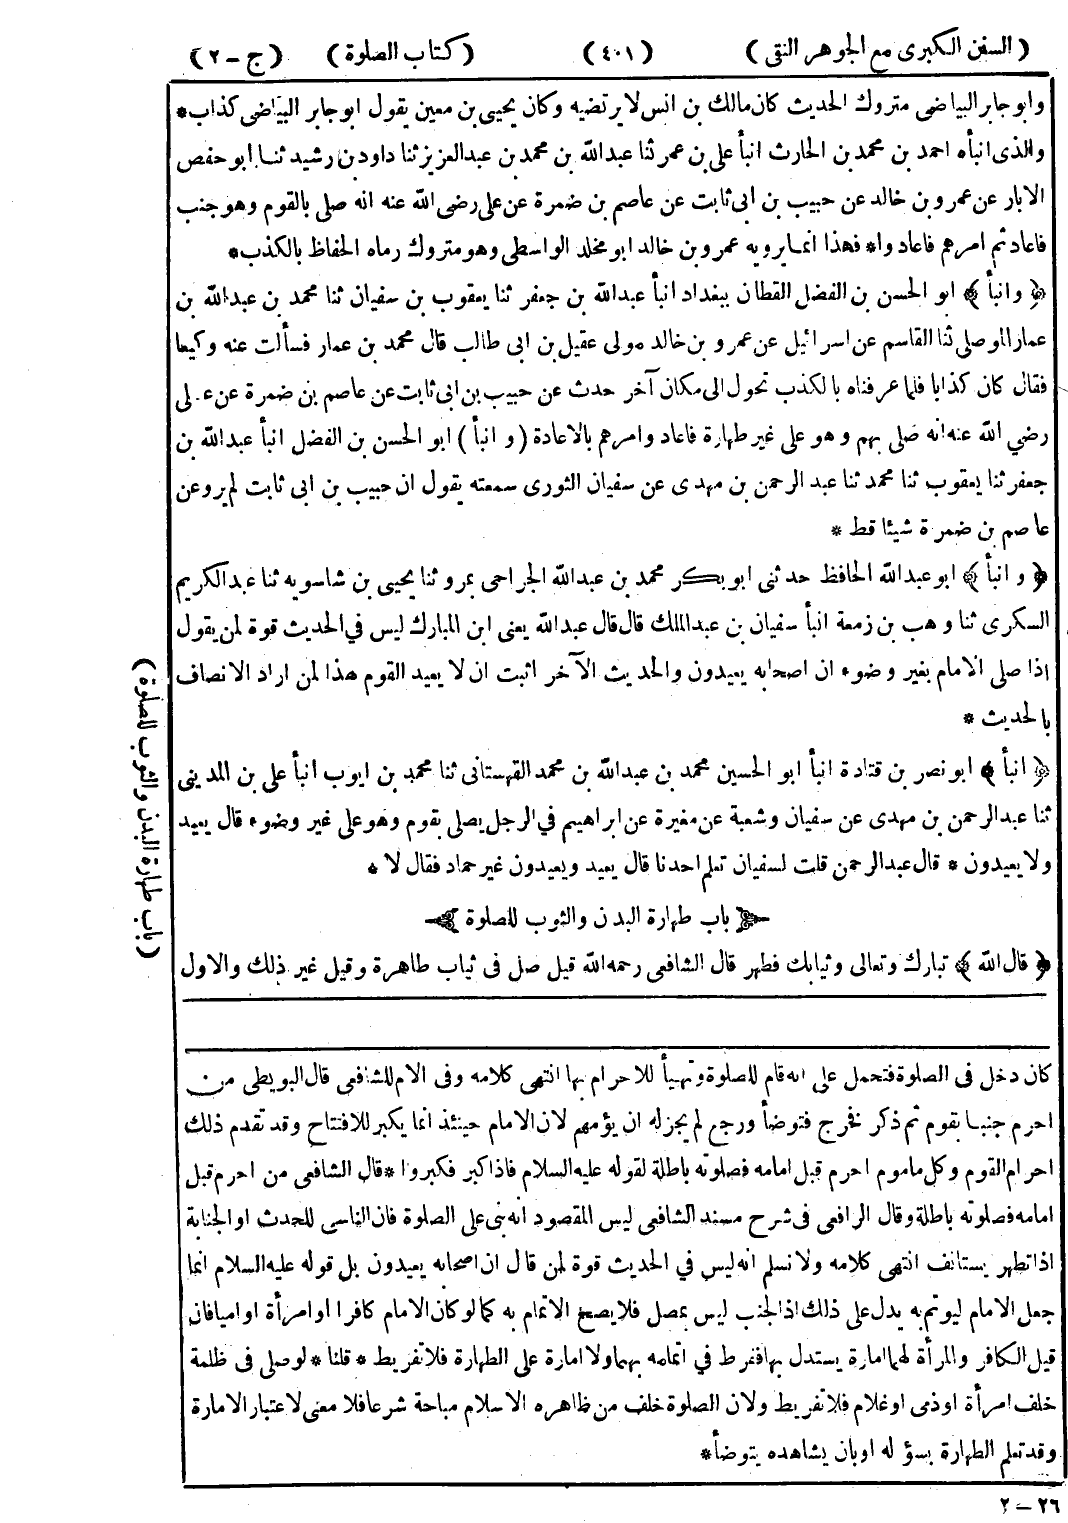 ( السنن الكبرى مع الجوهر النقى ) (٤٠١) ( كتاب الصلوة ) ( ج – ٢ )
وابوجابر البياضى متروك الحديث كان مالك بن انس لا يرتضيه وكان يحيى بن معين يقول ابو جابر البياضى كذاب*
والذى انبأه احمد بن محمد بن الحارث انبأ على بن عمر ثنا عبدالله بن محمد بن عبدالعزيز ثنا داود بن رشيد ثنا ابو حفص
الابار عن عمرو بن خالد عن حبيب بن ابى ثابت عن عاصم بن ضمرة عن على رضى الله عنه انه صلى بالقوم وهو جنب
فاعاد ثم امرهم فاعادوا* فهذا انما يرويه عمرو بن خالد ابو مخلد الواسطى وهو متروك رماه الحفاظ بالكذب*
﴿ وانبأ ﴾ ابو الحسن بن الفضل القطان ببغداد انبأ عبدالله بن جعفر ثنا يعقوب بن سفيان ثنا محمد بن عبدالله بن
عمار الموصلى ثنا القاسم عن اسرائيل عن عمرو بن خالد مولى عقيل بن ابى طالب قال محمد بن عمار فسألت عنه وكيعا
فقال كان كذابا فلما عرفناه بالكذب تحول الى مكان آخر حدث عن حبيب بن ابى ثابت عن عاصم بن ضمرة عن على
رضي الله عنه انه صلى بهم وهو على غير طهارة فاعاد وامرهم بالاعادة ( وانبأ ) ابو الحسن بن الفضل انبأ عبدالله بن
جعفر ثنا يعقوب ثنا محمد ثنا عبد الرحمن بن مهدى عن سفيان الثورى سمعته يقول ان حبيب بن ابى ثابت لم يرو عن
عاصم بن ضمرة شيئا قط *
﴿ وانبأ ﴾ ابوعبدالله الحافظ حدثنى ابوبكر محمد بن عبدالله الجراحى بمرو ثنا يحيى بن شاسويه ثنا عبدالكريم
السكرى ثنا وهب بن زمعة انبأ سفيان بن عبدالملك قال قال عبدالله يعنى ابن المبارك ليس في الحديث قوة لمن يقول
اذا صلى الامام بغير وضوء ان اصحابه يعيدون والحديث الآخر اثبت ان لا يعيد القوم هذا لمن اراد الانصاف
بالحديث *
﴿ انبأ ﴾ ابو نصر بن قتادة انبأ ابو الحسين محمد بن عبدالله بن محمد القهستانى ثنا محمد بن ايوب انبأ على بن المدينى
ثنا عبدالرحمن بن مهدى عن سفيان وشعبة عن مغيرة عن ابراهيم في الرجل يصلى بقوم وهو على غير وضوء قال يعيد
ولا يعيدون * قال عبدالرحمن قلت لسفيان تعلم احدنا قال يعيد ويعيدون غير حماد فقال لا *
باب طهارة البدن والثوب للصلوة
﴿ قال الله ﴾ تبارك وتعالى وثيابك فطهر قال الشافعى رحمه الله قيل صل فى ثياب طاهرة وقيل غير ذلك والاول
( باب طهارة البدن والثوب للصلوة )
كان دخل فى الصلوة فتحمل على انه قام للصلوة وتهيأ للاحرام بها انتهى كلامه وفى الام للشافعى قال البويطى من
احرم جنبا بقوم ثم ذكر فخرج فتوضأ ورجع لم يجز له ان يؤمهم لان الامام حينئذ انما يكبر للافتتاح وقد تقدم ذلك
احرام القوم وكل ماموم احرم قبل امامه فصلوته باطلة لقوله عليه السلام فاذا كبر فكبروا *قال الشافعى من احرم قبل
امامه فصلوته باطلة وقال الرافعى فى شرح مسند الشافعى ليس المقصود انه بنى على الصلوة فان الناسى للحدث او الجنابة
اذا تطهر يستانف انتهى كلامه ولا نسلم انه ليس في الحديث قوة لمن قال ان اصحابه يعيدون بل قوله عليه السلام انما
جعل الامام ليوتم به يدل على ذلك اذ الجنب ليس بمصل فلا يصح الائتمام به كما لوكان الامام كافرا او امرأة او اميا فان
قيل الكافر والمرأة لهما امارة يستدل بها ففرط في ائتمامه بهما ولا امارة على الطهارة فلا تفريط * قلنا * لو صلى فى ظلمة
خلف امرأة اوذى او غلام فلا تفريط ولان الصلوة خلف من ظاهره الاسلام مباحة شرعا فلا معنى لاعتبار الامارة
وقد تعلم الطهارة بسؤ له او بان يشاهده يتوضأ*
٢٦ – ٢